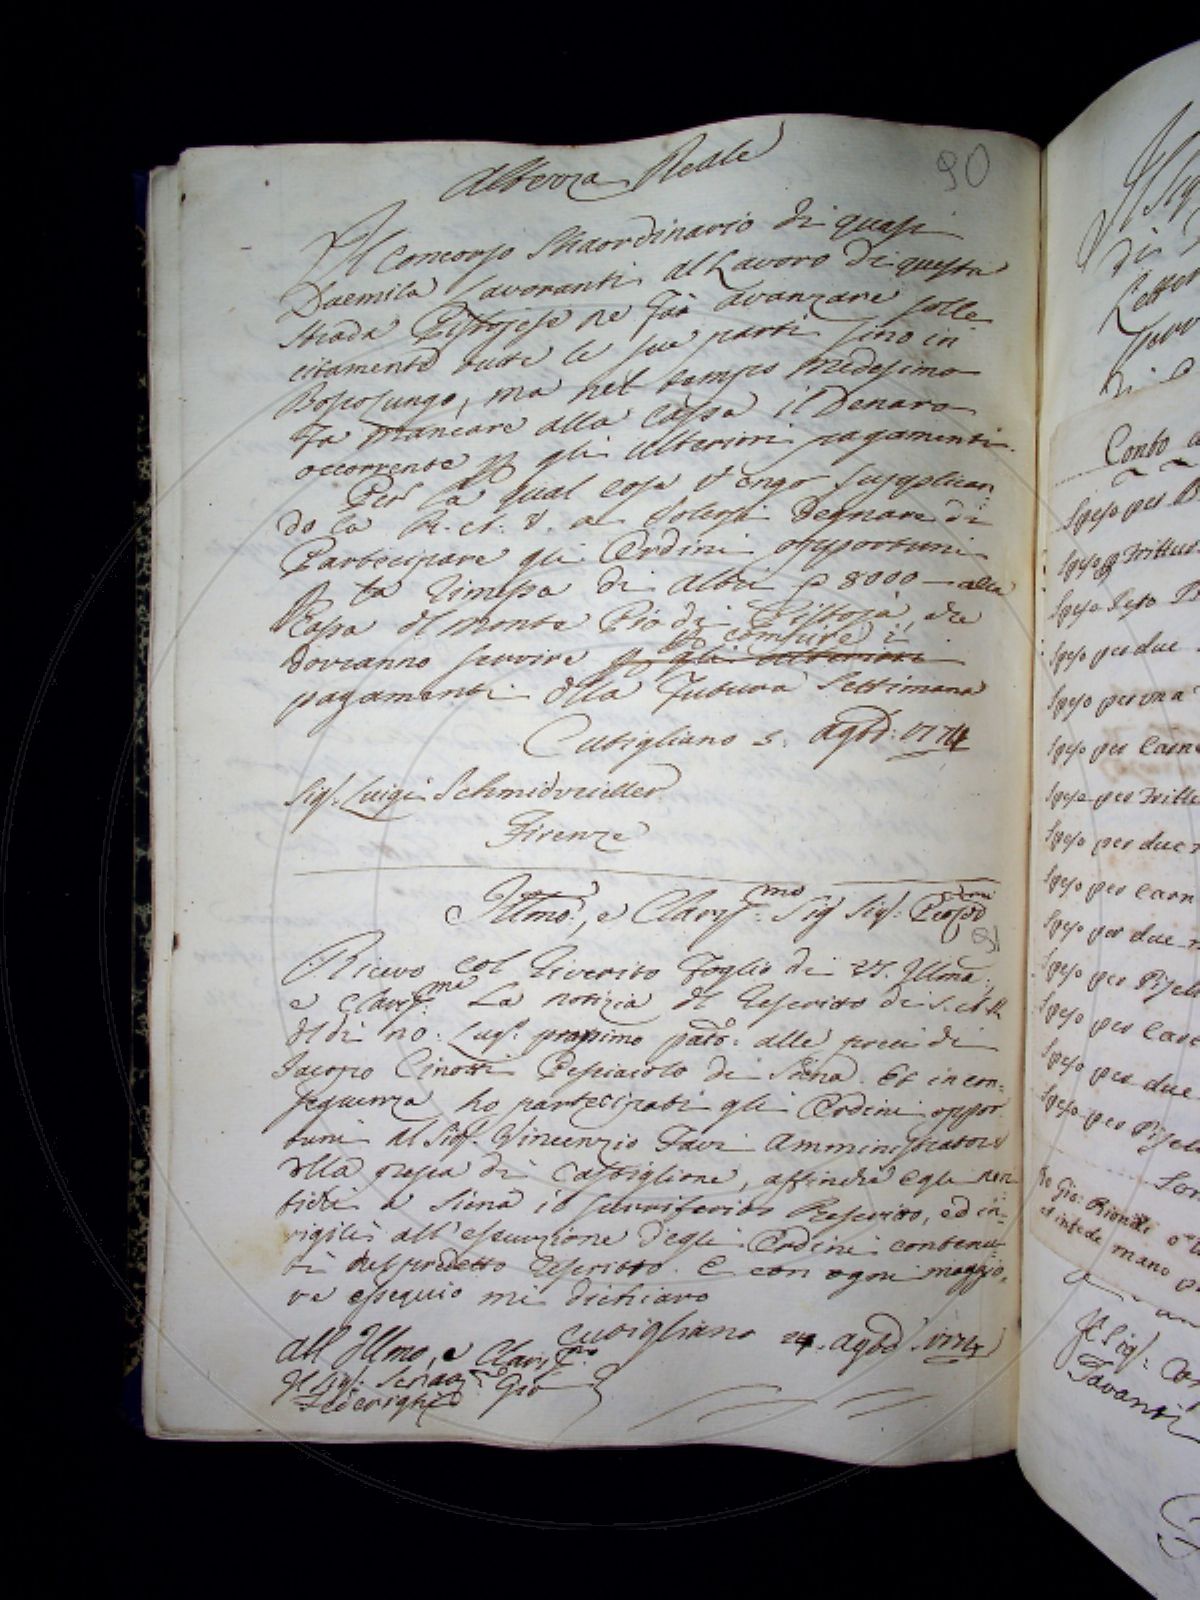 90
Altezza Reale
Il Concorso Straordinario di quasi
Duemila Lavoranti al Lavoro di questa
Strada Pistojese ne fà avanzare solle
citamente tutte le sue parti sino in
Boscolungo, ma nel tempo medesimo
fa mancare alla Cassa il Denaro
occorrente p gli ulteriori pagamenti.
Per la qual cosa vengo supplican:
do la R. A. V. a volersi degnare di
Partecipare gli Ordini opportuni
p la rimessa di altri 8000 — alla
Cassa del Monte Pio di Pistoja, che
dovranno servire p gli ulteriori p compire i
pagamenti della futura Settimana
Cutigliano 5. Agto: 1774
Sigr. Luigi Schmidveiller
Firenze
Illmo, e Clarismo Sig Sigr: Pron
Ricevo col riverito Foglio di VS. Illma
e Clarisma La notizia del Rescritto di S. A. R.
del di 10. Lugo. prossimo pato: alle preci di
Jacopo Cinotti Pesciaiolo di Siena. Et in con:
seguenza ho partecipati gli Ordini oppor
tuni al Sigr. Vincenzio Favi Amministratore
della pesca di Castiglione, affinchè egli
a Siena il Rescritto, ed in:
vigili all'esecuzione degli Ordini contenu:
ti nel predetto Rescritto. E con ogni maggio:
re ossequio mi dichiaro
Cutigliano 24. Agto. 1774
All Illmo, e Clarismo
Il Sigr. Gio
Federighi
Conto
Spese per
Spese p vittu
Spese
Spese per due
Spese per una
Spese per Carne
Spese per vitto
Spese per due
Spese per Carn
Spese per due
Spese per Piselli
Spese per Carne
Spese per due
Spese per Piselli
Io Gio:
in fede mano
Il Sigr:
Tavanti